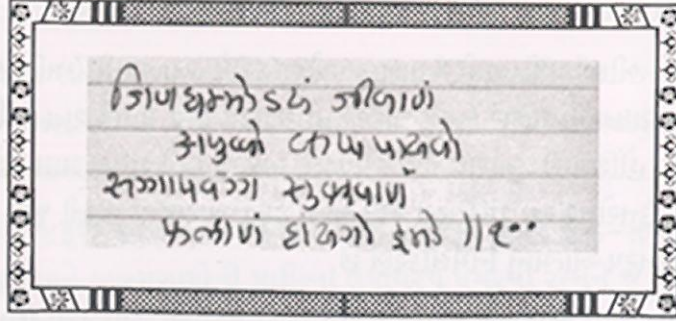 जिणधम्मोऽयं जीवाणं
अपुव्वो कप्पपायवो
सग्गापवग्ग सुक्खाणं
फलाणं दायगो इमो ॥१००